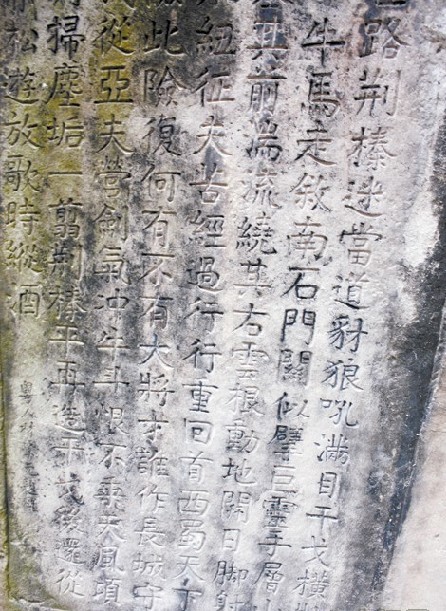 路荆榛迷當道豺狼吼滿目干戈橫
牛馬走敘南石門關似擘巨靈手層
其前湍流繞其右雲根動地闢日脚射
紐征夫苦經過行行重回首西蜀天下
此險復何有不有大將才誰作長城守
從亞夫營劍氣冲牛斗恨不乘天風頃
掃塵垢一翦荆榛平再造干戈後還從
松遊放歌時縱酒